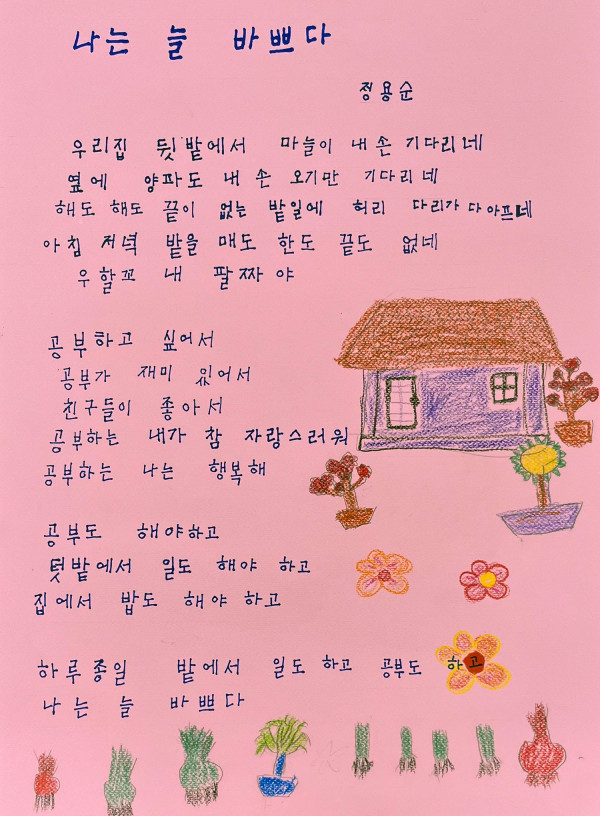 나는 늘 바쁘다
정용순
우리집 뒷밭에서 마늘이 내 손 기다리네
옆에 양파도 내 손 오기만 기다리네
해도 해도 끝이 없는 밭일에 허리 다리가 다 아프네
아침 저녁 밭을 매도 한도 끝도 없네
우할꼬 내 팔짜야
공부하고 싶어서
공부가 재미 있어서
친구들이 좋아서
공부하는 내가 참 자랑스러워
공부하는 나는 행복해
공부도 해야하고
텃밭에서 일도 해야 하고
집에서 밥도 해야 하고
하루종일 밭에서 일도 하고 공부도 하고
나는 늘 바쁘다